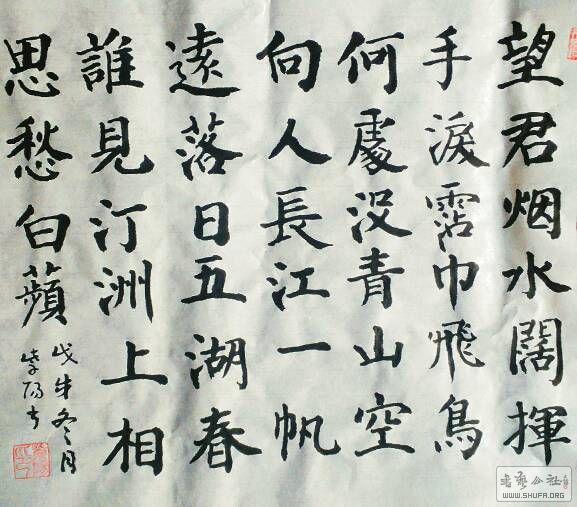 望君烟水闊揮
手淚霑巾飛鳥
何處没青山空
向人長江一帆
遠落日五湖春
誰見汀洲上相
思愁白蘋
冬月
書藝公社
WWW.SHUFA.ORG